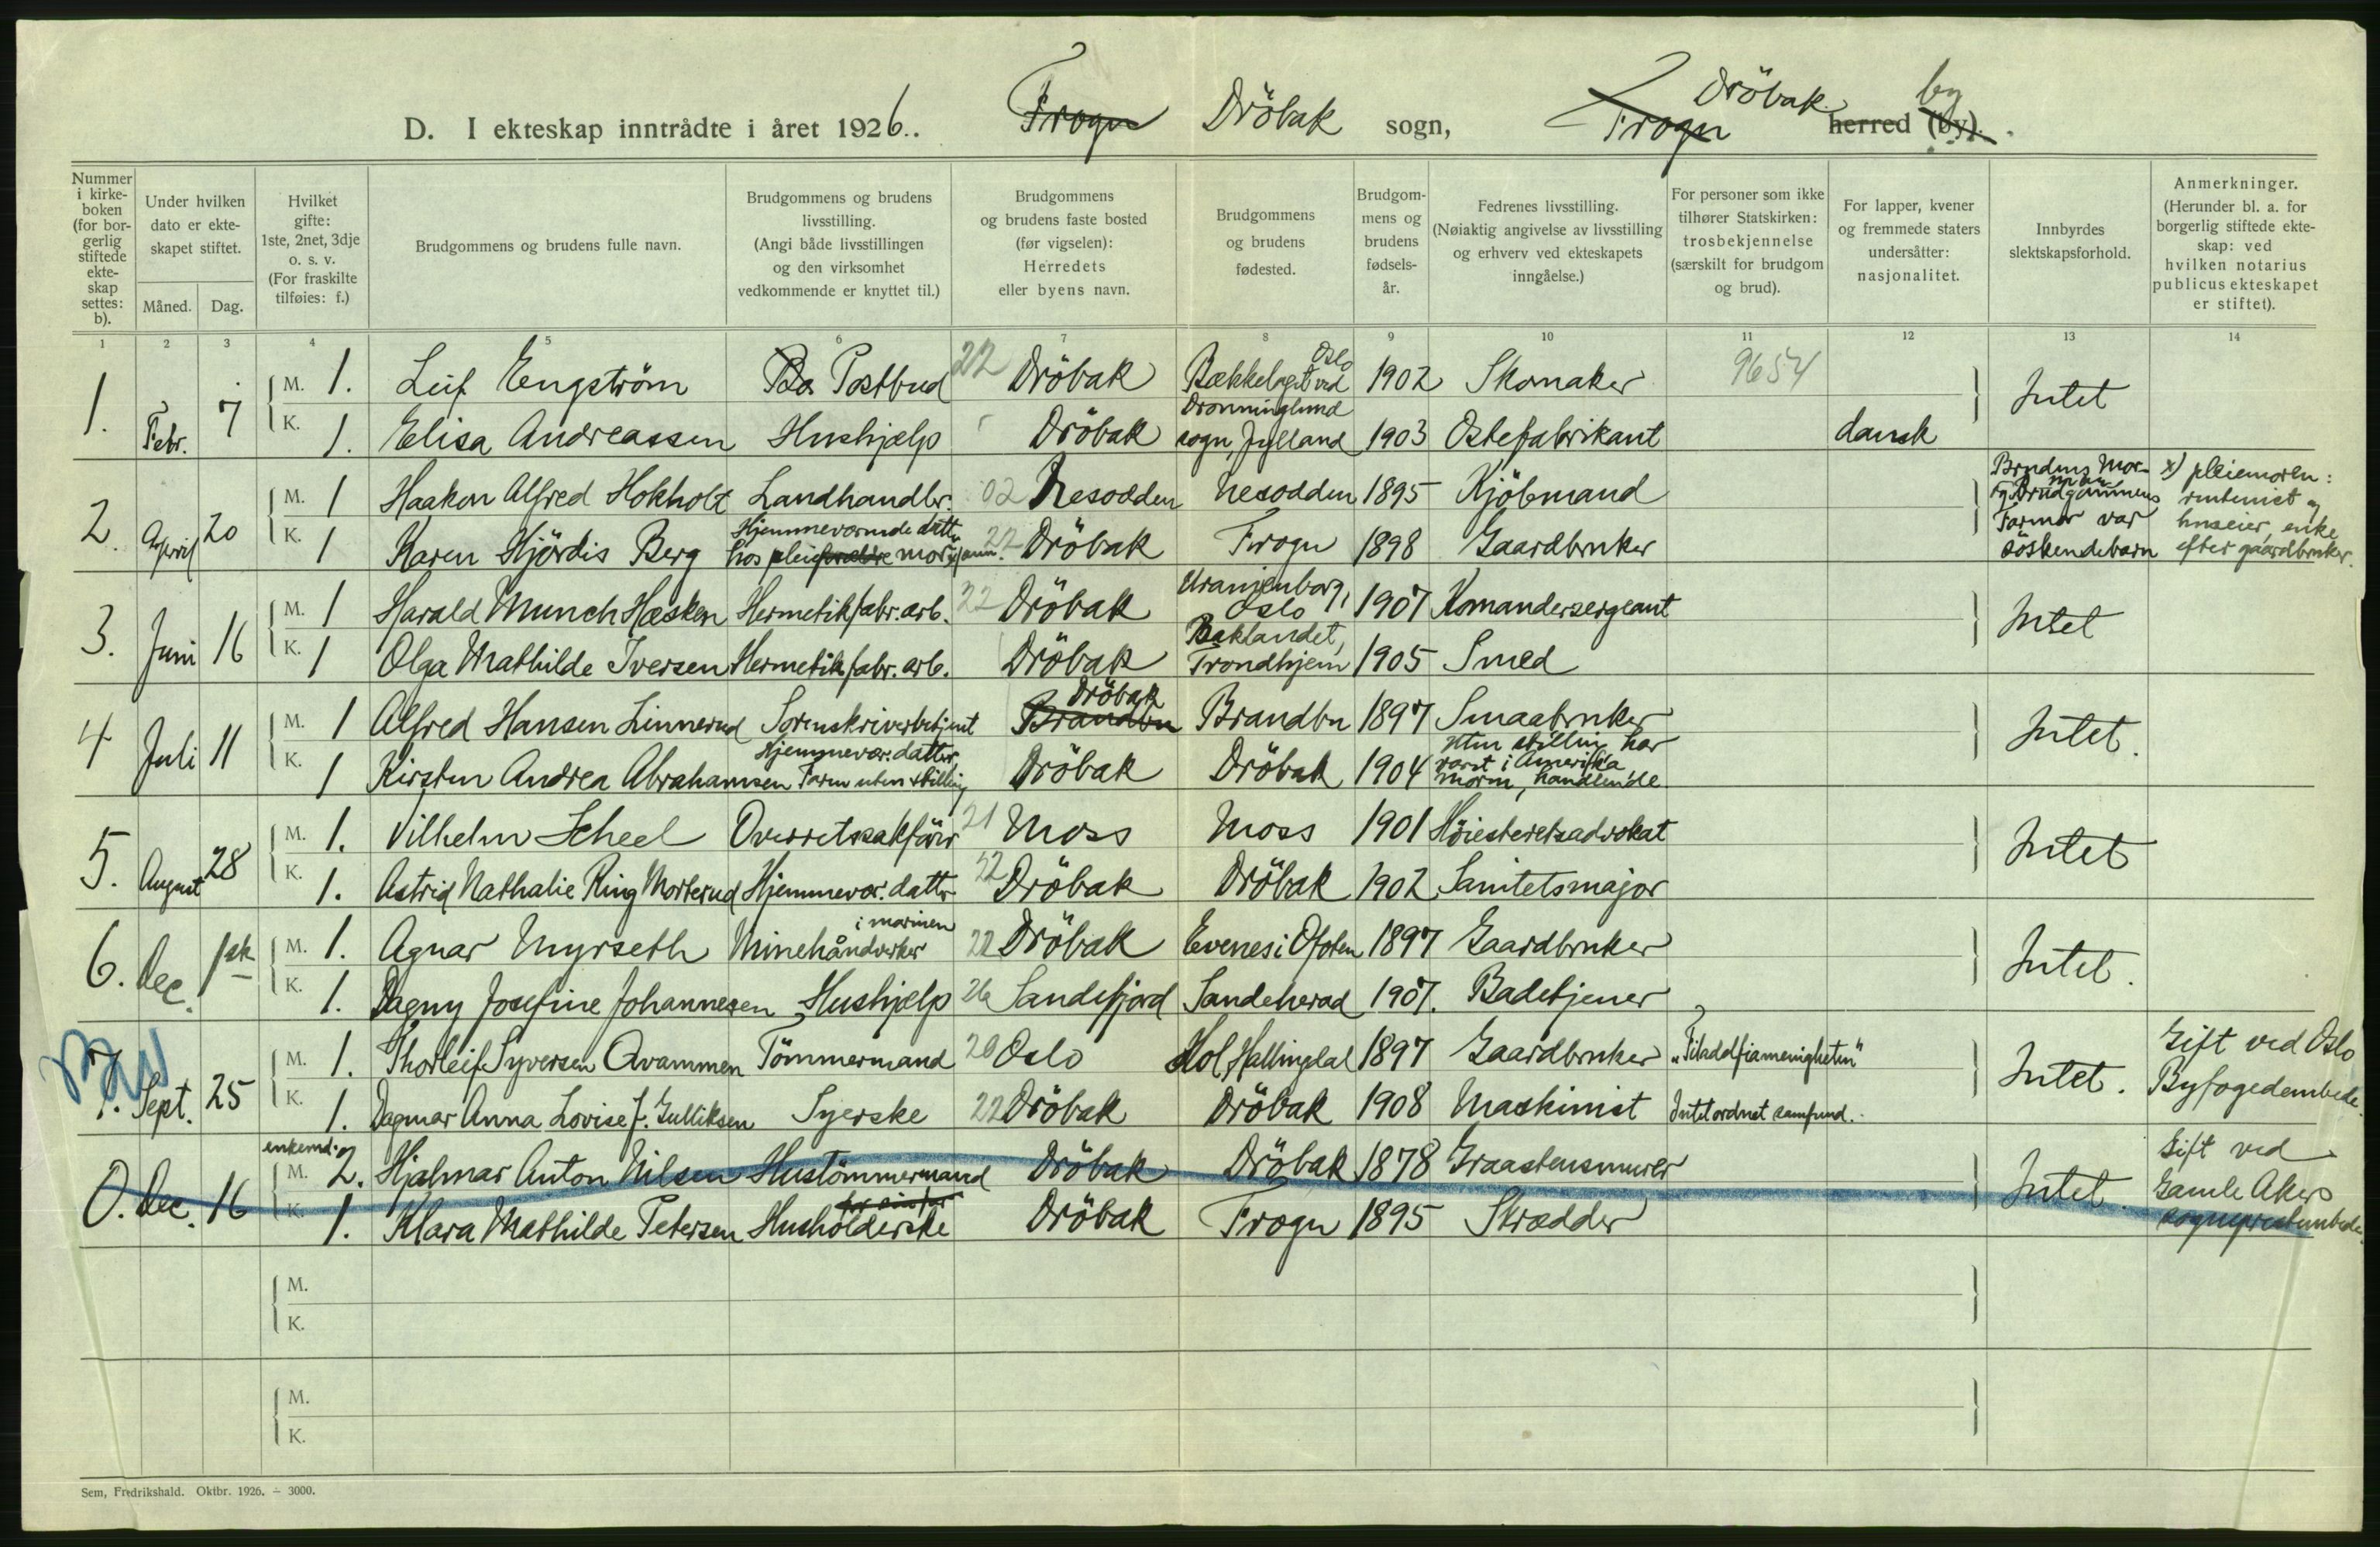 D. I ekteskap inntrådte i året 1926. Frogn Dröbak sogn, Frogn Dröbak herred (by). by
Nummer i kirkeboken (for borgerlig stiftede ekteskap settes: b).
Under hvilken dato er ekteskapet stiftet.
Måned. Dag.
Hvilket gifte: 1ste, 2net, 3dje o. s. v. (For fraskilte tilføies: f.)
Brudgommens og brudens fulle navn.
Brudgommens og brudens livsstilling. (Angi både livsstillingen og den virksomhet vedkommende er knyttet til.)
Brudgommens og brudens faste bosted (før vigselen): Herredets eller byens navn.
Brudgommens og brudens fødested.
Brudgommens og brudens fødsels-år.
Fedrenes livsstilling. (Nøiaktig angivelse av livsstilling og erhverv ved ekteskapets inngåelse.)
For personer som ikke tilhører Statskirken: trosbekjennelse (særskilt for brudgom og brud).
For lapper, kvener og fremmede staters undersåtter: nasjonalitet.
Innbyrdes slektskapsforhold.
Anmerkninger. (Herunder bl. a. for borgerlig stiftede ekteskap: ved hvilken notarius publicus ekteskapet er stiftet).
1 2 3 4 5 6 7 8 9 10 11 12 13 14
1. Febr. 7 M. 1. Leif Engström Postbud 22 Dröbak Bækkelaget ved Oslo 1902 Skomaker 9654 Intet
K. 1. Elisa Andreassen Hushjælp Dröbak Dronninglund sogn, Jylland 1903 Ostefabrikant dansk
2. April 20 M. 1 Haakon Alfred Hokholt Landhandler. 02 Nesodden Nesodden 1895 Kjöbmand Brudens Mor og Brudgommens Farmor var söskendebarn x) pleiemoren: rentenist og huseier, enke efter gaardbruker.
K. 1 Karen Hjördis Berg Hjemmeværende datter hos pleieforældre mor 22 Dröbak Frogn 1898 Gaardbruker
3. Juni 16 M. 1 Harald Munch Hæsken Hermetikfabr. arb. 22 Dröbak Uranienborg, Oslo 1907 Komandersergeant Intet
K. 1 Olga Mathilde Iversen Hermetikfabr. arb. Dröbak Baklandet, Trondhjem 1905 Smed
4 Juli 11 M. 1 Alfred Hansen Linnerud Sorenskriverbetjent Brandbu Dröbak Brandbu 1897 Smaabruker Intet.
K. 1 Kirsten Andrea Abrahamsen Hjemmevær. datter, Faren uten stilling Dröbak Dröbak 1904 uten stilling har været i Amerika moren, handlende.
5. August 28 M. 1. Vilhelm Scheel Overretssakförer 21 Moss Moss 1901 Höiesteretsadvokat Intet
K. 1. Astrid Nathalie Ring Morterud Hjemmevær. datter 22 Dröbak Dröbak 1902 Sanitetsmajor
6. Dec. 1ste M. 1. Agnar Myrseth Minehåndverker i marinen 22 Dröbak Evenes i Ofoten 1897 Gaardbruker Intet.
K. 1. Dagny Josefine Johannesen Hushjelp 26 Sandefjord Sandeherad 1907. Badetjener
7. Sept. 25 M. 1. Thorleif Syversen Qvammen Tömmermand 20 Oslo Hol, Hallingdal 1897 Gaardbruker "Filadelfiamenigheten" Intet. Gift ved Oslo Byfogedembede.
K. 1. Dagmar Anna Lovise J. Gulliksen Syerske 22 Dröbak Dröbak 1908 Maskinist Intet ordnet samfund.
0. Dec. 16 enkemd. M. 2. Hjalmar Anton Nilsen Hustömmermand Dröbak Dröbak 1878 Graastensmurer Intet. Gift ved Gamle Akers sogneprestembede.
K. 1. Klara Mathilde Petersen Husholderske Dröbak Frogn 1895 Skrædder
M.
K.
M.
K.
Sem, Fredrikshald. Oktbr. 1926. ÷ 3000.